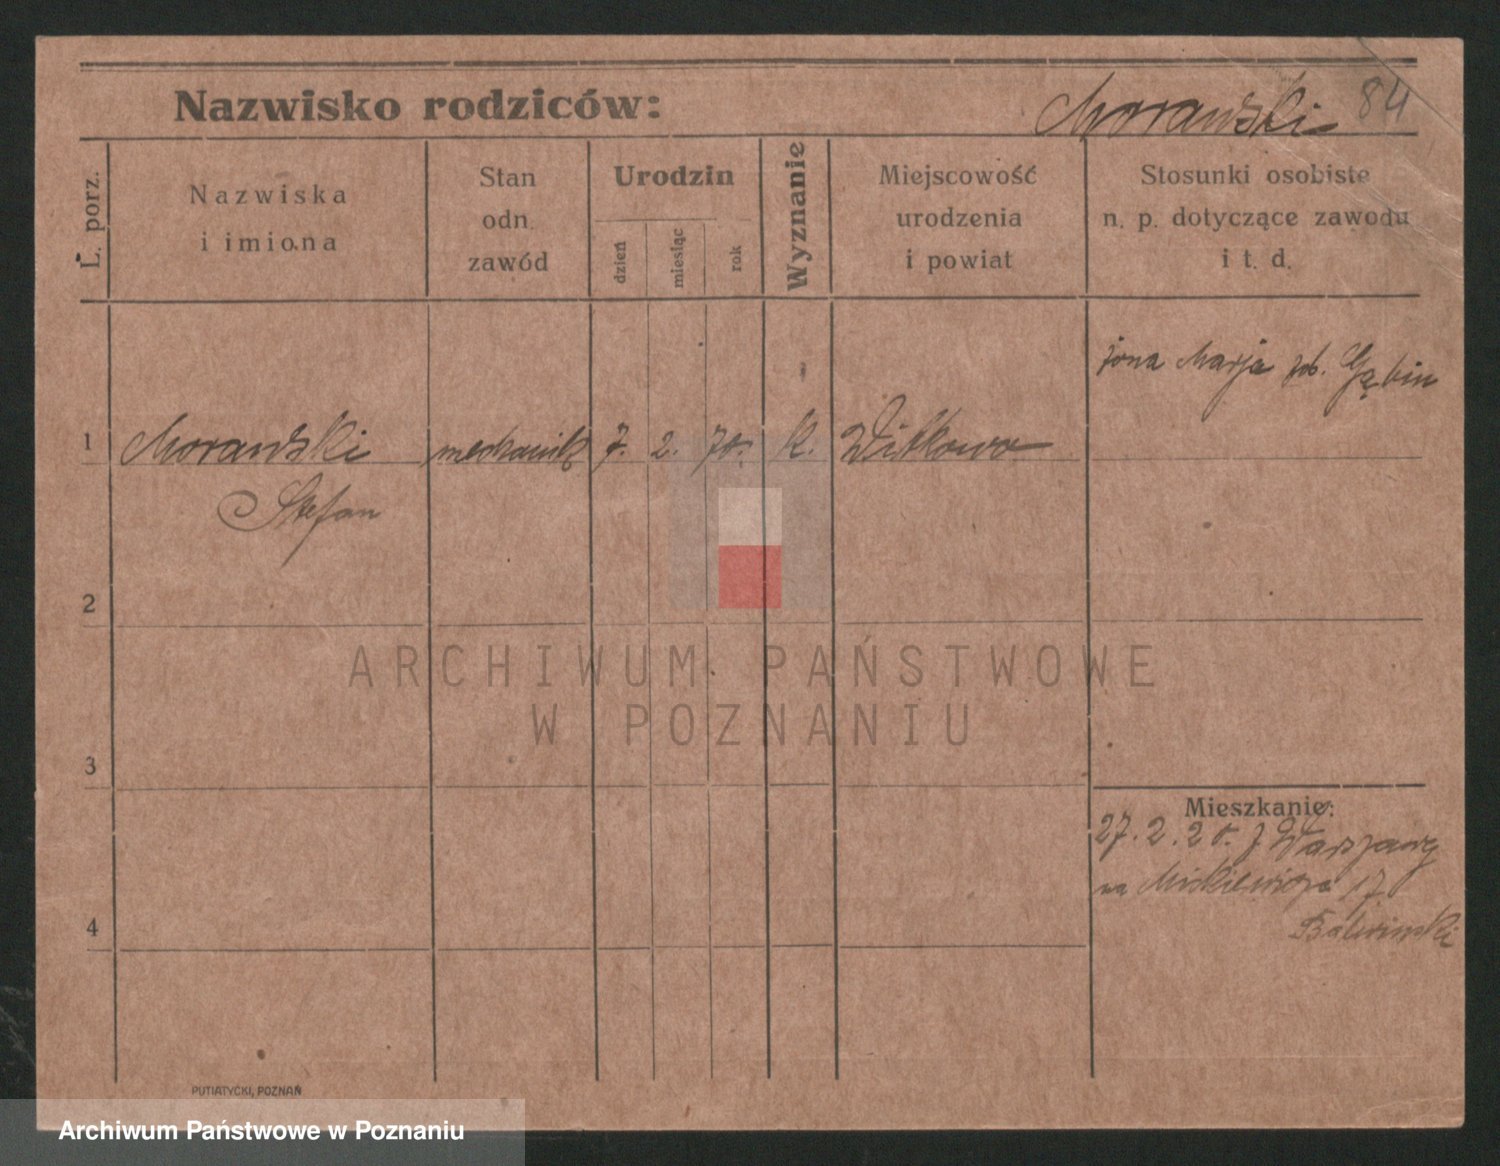 Nazwisko rodziców: Morawski 84
L. porz.
Nazwiska
i imiona
Stan
odn.
zawód
Urodzin
dzień
miesiąc
rok
Wyznanie
Miejscowość
urodzenia
i powiat
Stosunki osobiste
n. p. dotyczące zawodu
i t. d.
żona Marja
1 Morawski mechanik 7. 2. 70. k. Witkowo
Stefan
2
ARCHIWUM PAŃSTWOWE
W POZNANIU
3
Mieszkanie:
27. 2. 20. z Warszawy
na Mickiewicza 17
4
PUTIATYCKI, POZNAŃ
Archiwum Państwowe w Poznaniu